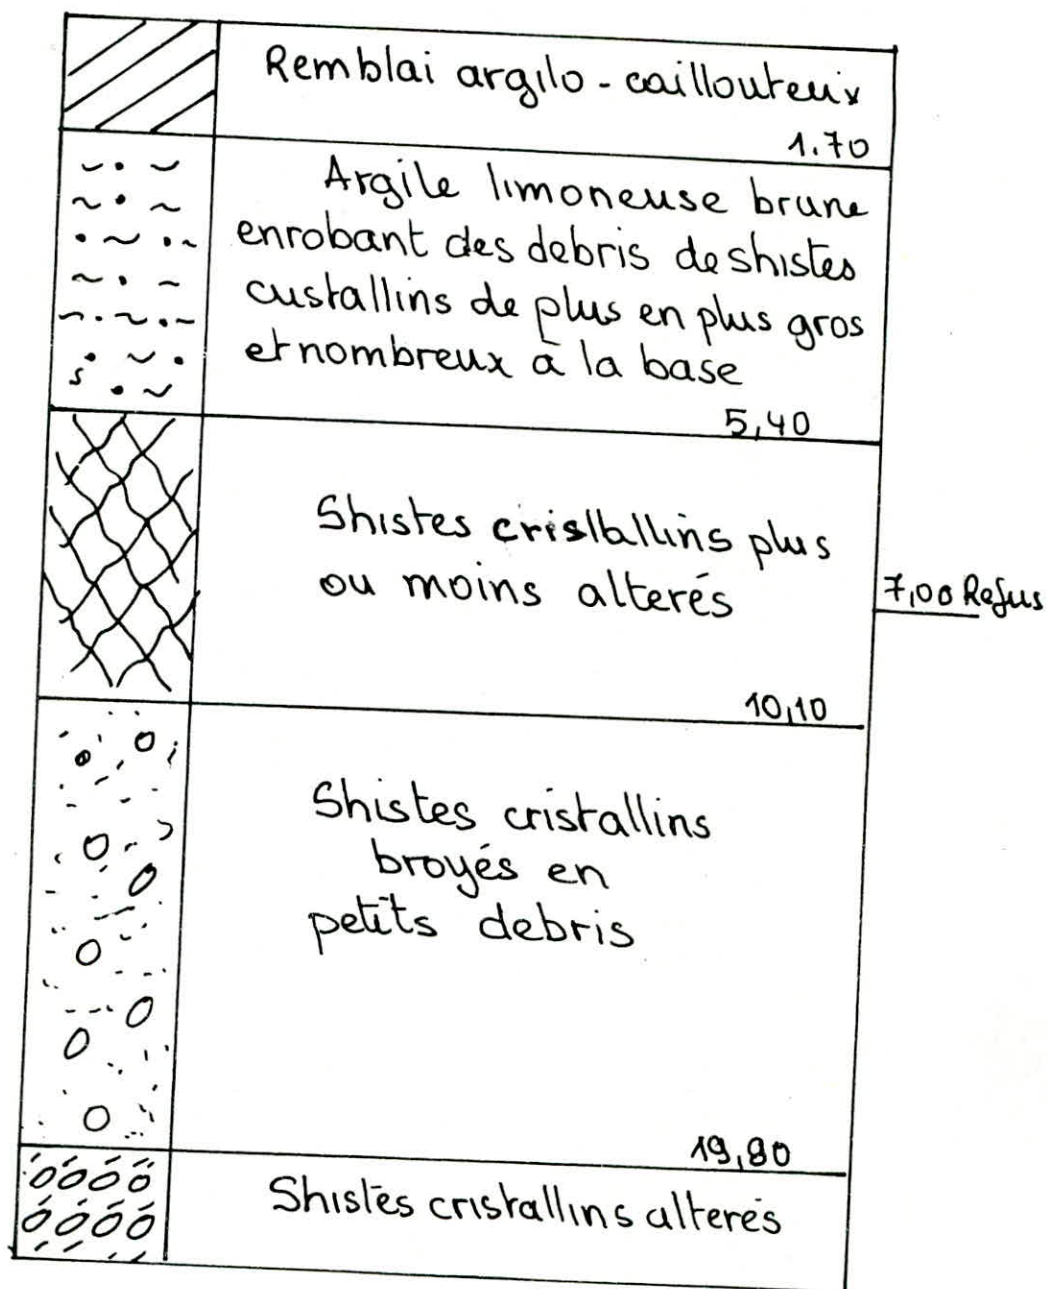 Remblai argilo-caillouteux
1.70
Argile limoneuse brune
enrobant des debris de shistes
custallins de plus en plus gros
et nombreux à la base
5,40
Shistes crislballins plus
ou moins alterés
7,00 Refus
10,10
Shistes cristallins
broyés en
petits debris
19,80
Shistes cristallins alterés